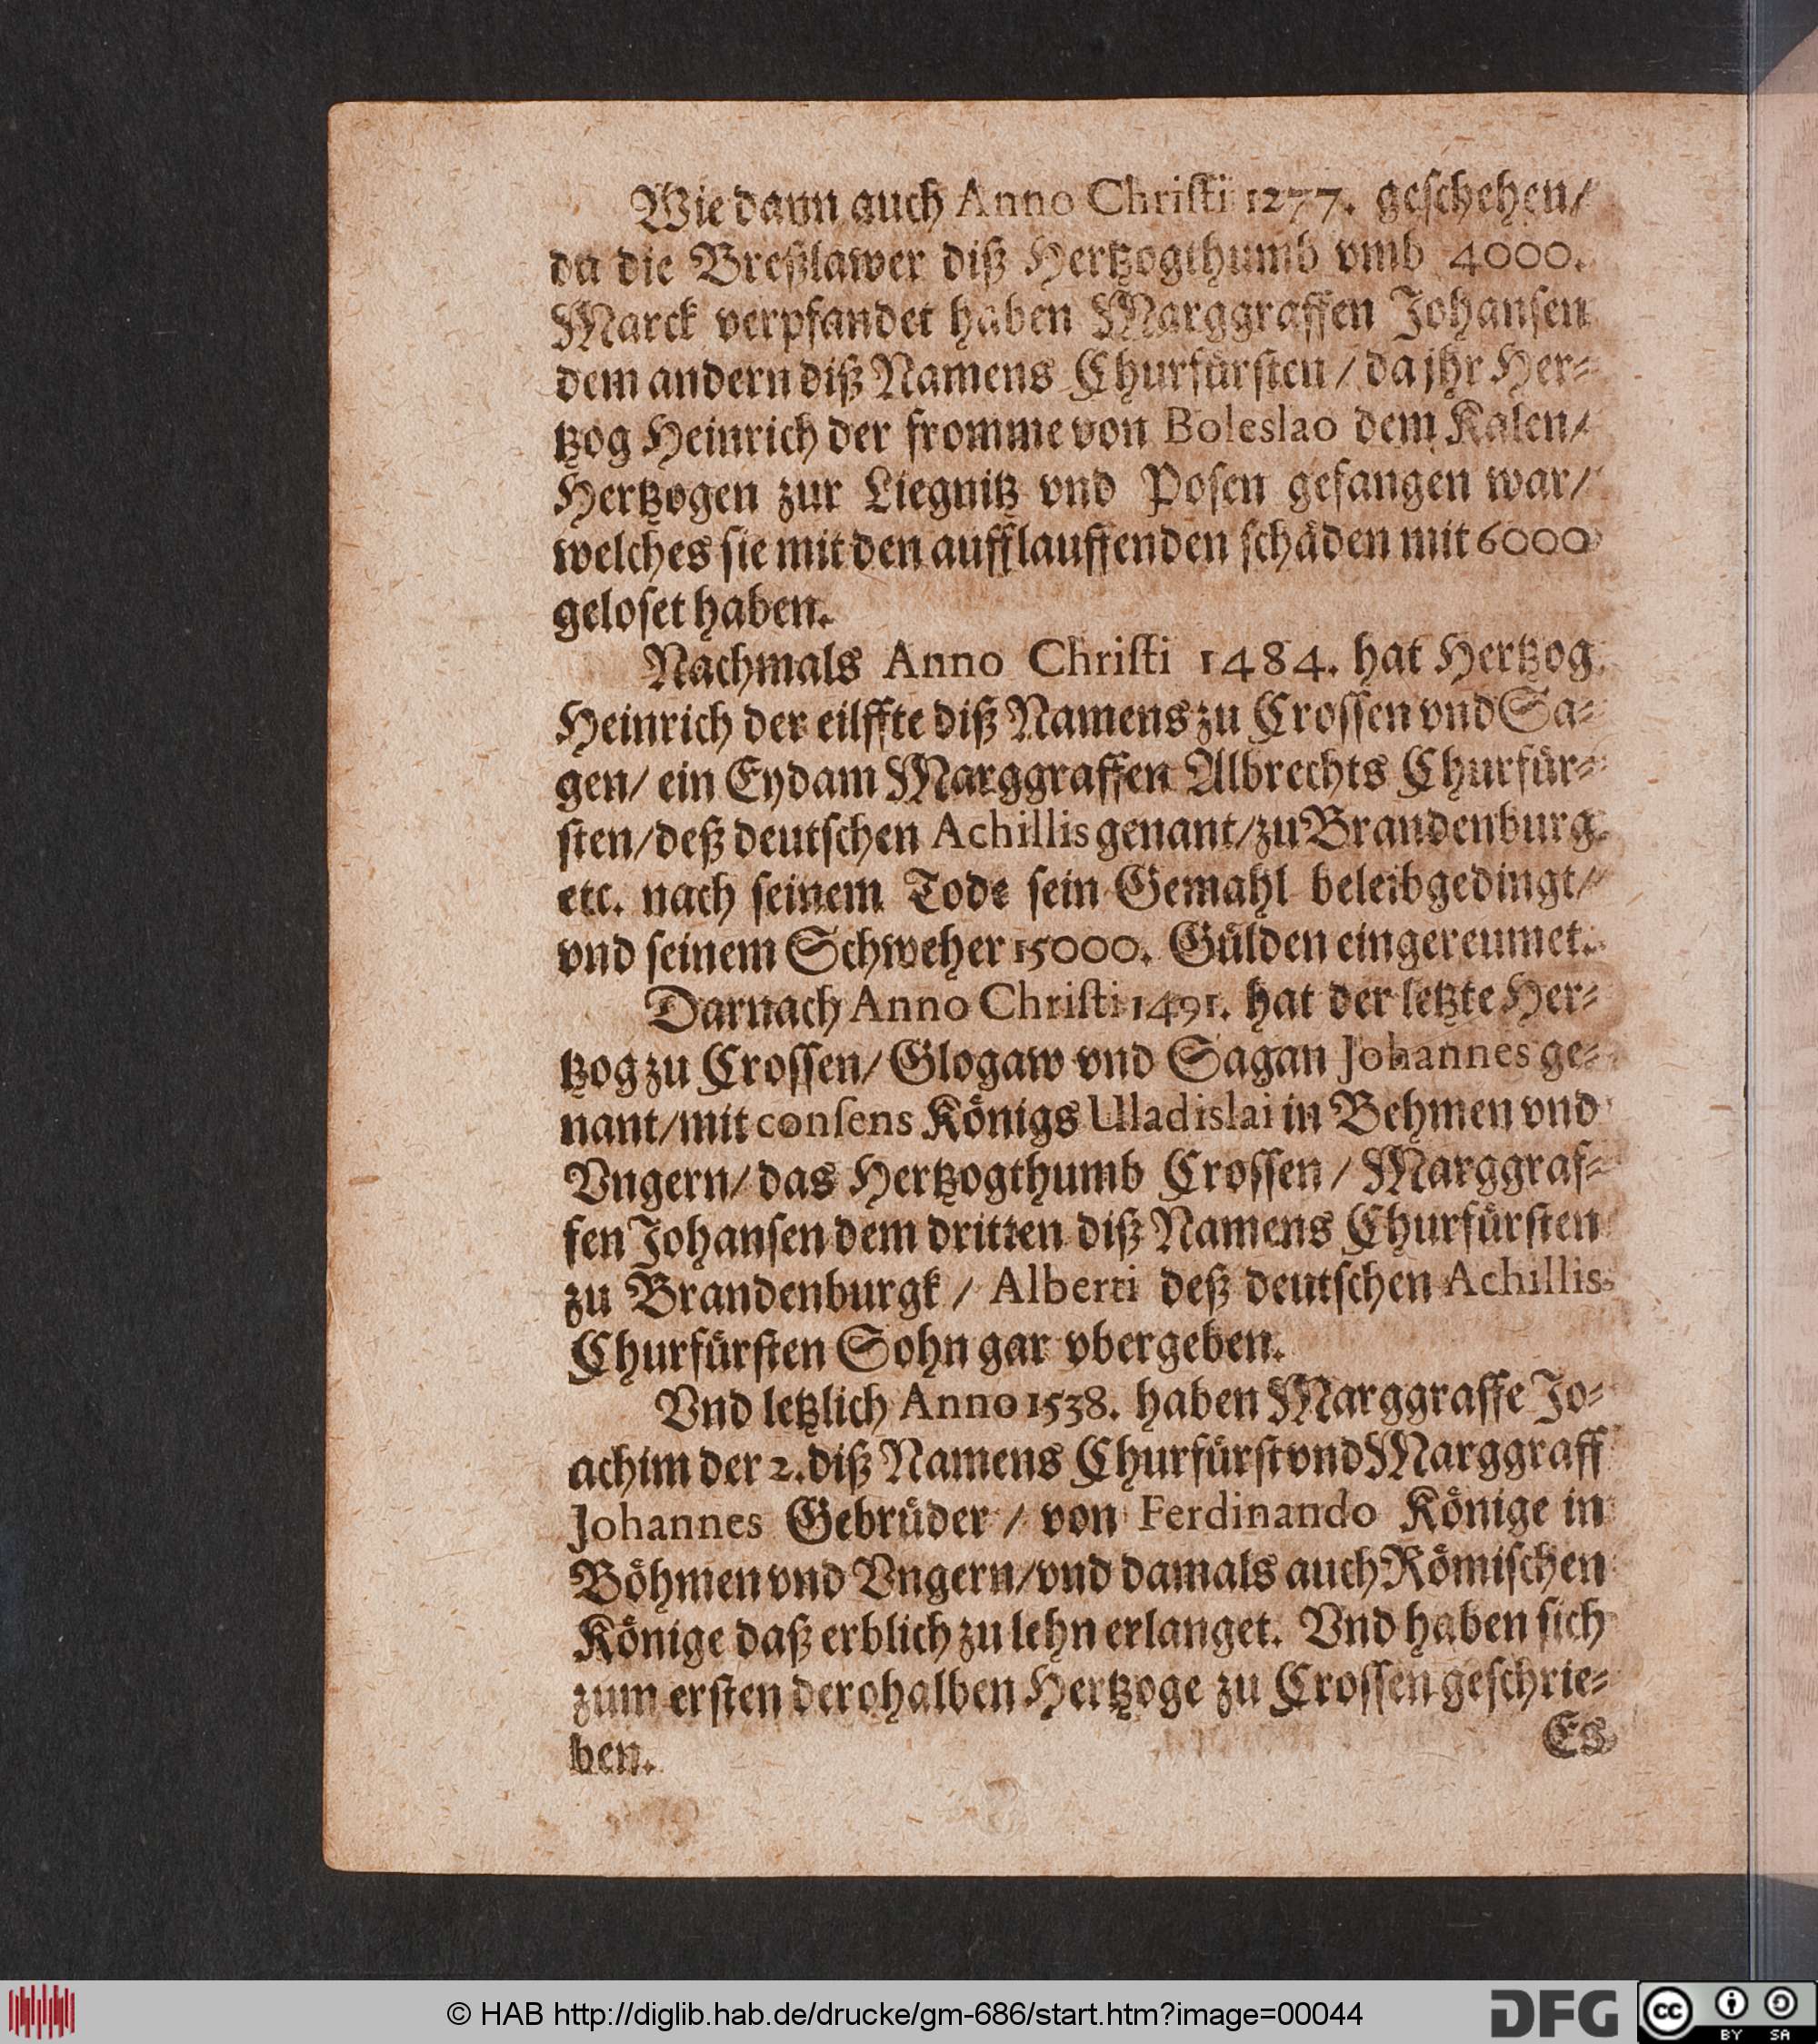 Wie dann auch Anno Chriſti 1277. geſchehen/
da die Breßlawer diß Hertzogthumb vmb 4000.
Marck verpfandet haben Marggraffen Johanſen
dem andern diß Namens Churfürſten / da jhr Her⸗
tzog Heinrich der fromme von Boleslao dem Kalen/
Hertzogen zur Liegnitz vnd Poſen gefangen war/
welches ſie mit den aufflauffenden ſchäden mit 6000
geloſet haben.
Nachmals Anno Chriſti 1484. hat Hertzog
Heinrich der eilffte diß Namens zu Croſſen vnd Sa⸗
gen/ ein Eydam Marggraffen Albrechts Churfür⸗
ſten/deß deutſchen Achillis genant/zu Brandenburg
etc. nach ſeinem Tode ſein Gemahl beleibgedingt/
vnd ſeinem Schweher 15000. Gülden eingereumet.
Darnach Anno Chriſti 1491. hat der letzte Her⸗
tzog zu Croſſen/ Glogaw vnd Sagan Johannes ge⸗
nant/mit conſens Königs Uladislai in Behmen vnd
Vngern/ das Hertzogthumb Croſſen / Marggraf⸗
fen Johanſen dem dritten diß Namens Churfürſten
zu Brandenburgk / Alberti deß deutſchen Achillis
Churfürſten Sohn gar vbergeben.
Vnd letzlich Anno 1538. haben Marggraffe Jo⸗
achim der 2. diß Namens Churfürſt vnd Marggraff
Johannes Gebrüder / von Ferdinando Könige in
Böhmen vnd Vngern/vnd damals auch Römiſchen
Könige daß erblich zu lehn erlanget. Vnd haben ſich
zum erſten derohalben Hertzoge zu Croſſen geſchrie⸗
ben.
Es
© HAB http://diglib.hab.de/drucke/gm-686/start.htm?image=00044
DFG
cc BY SA